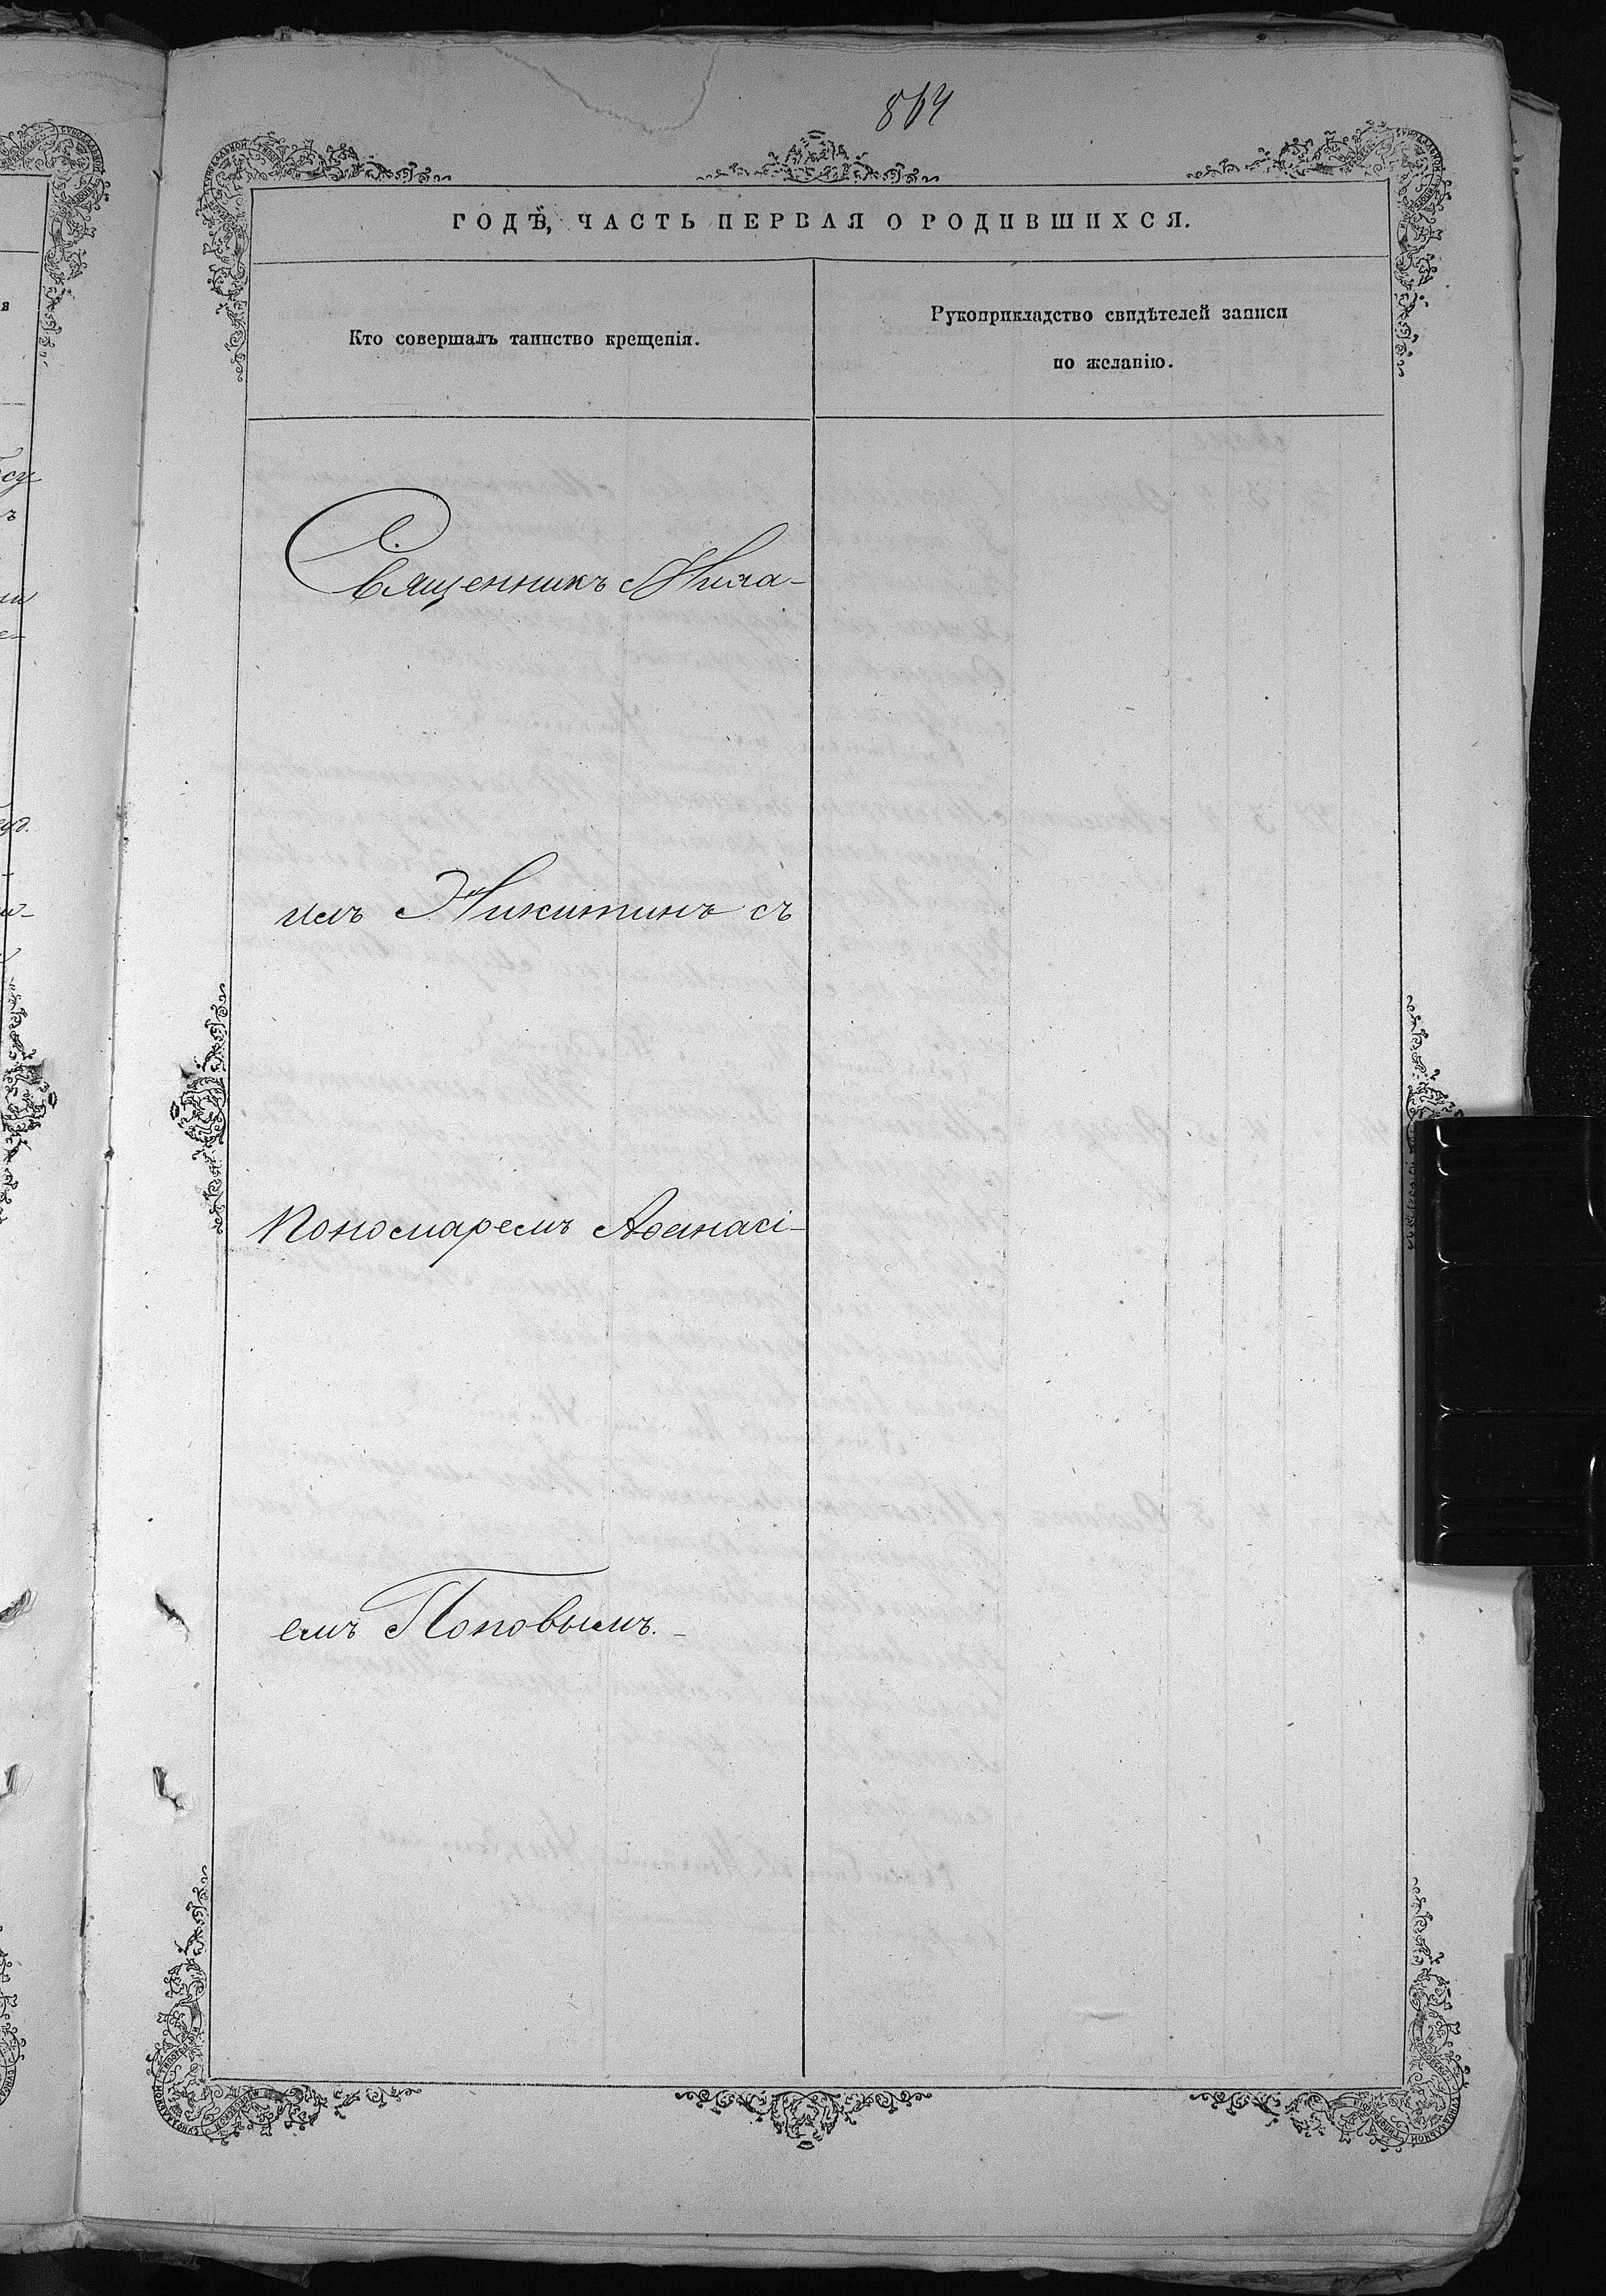 864
ГОДѢ, ЧАСТЬ ПЕРВАЯ О РОДИВШИХСЯ.
Кто совершалъ таинство крещенія.
Рукоприкладство свидѣтелей записи
по желанію.
Священникъ Миха-
илъ Никитинъ съ
Пономаремъ Аѳанасі-
емъ Поповымъ.